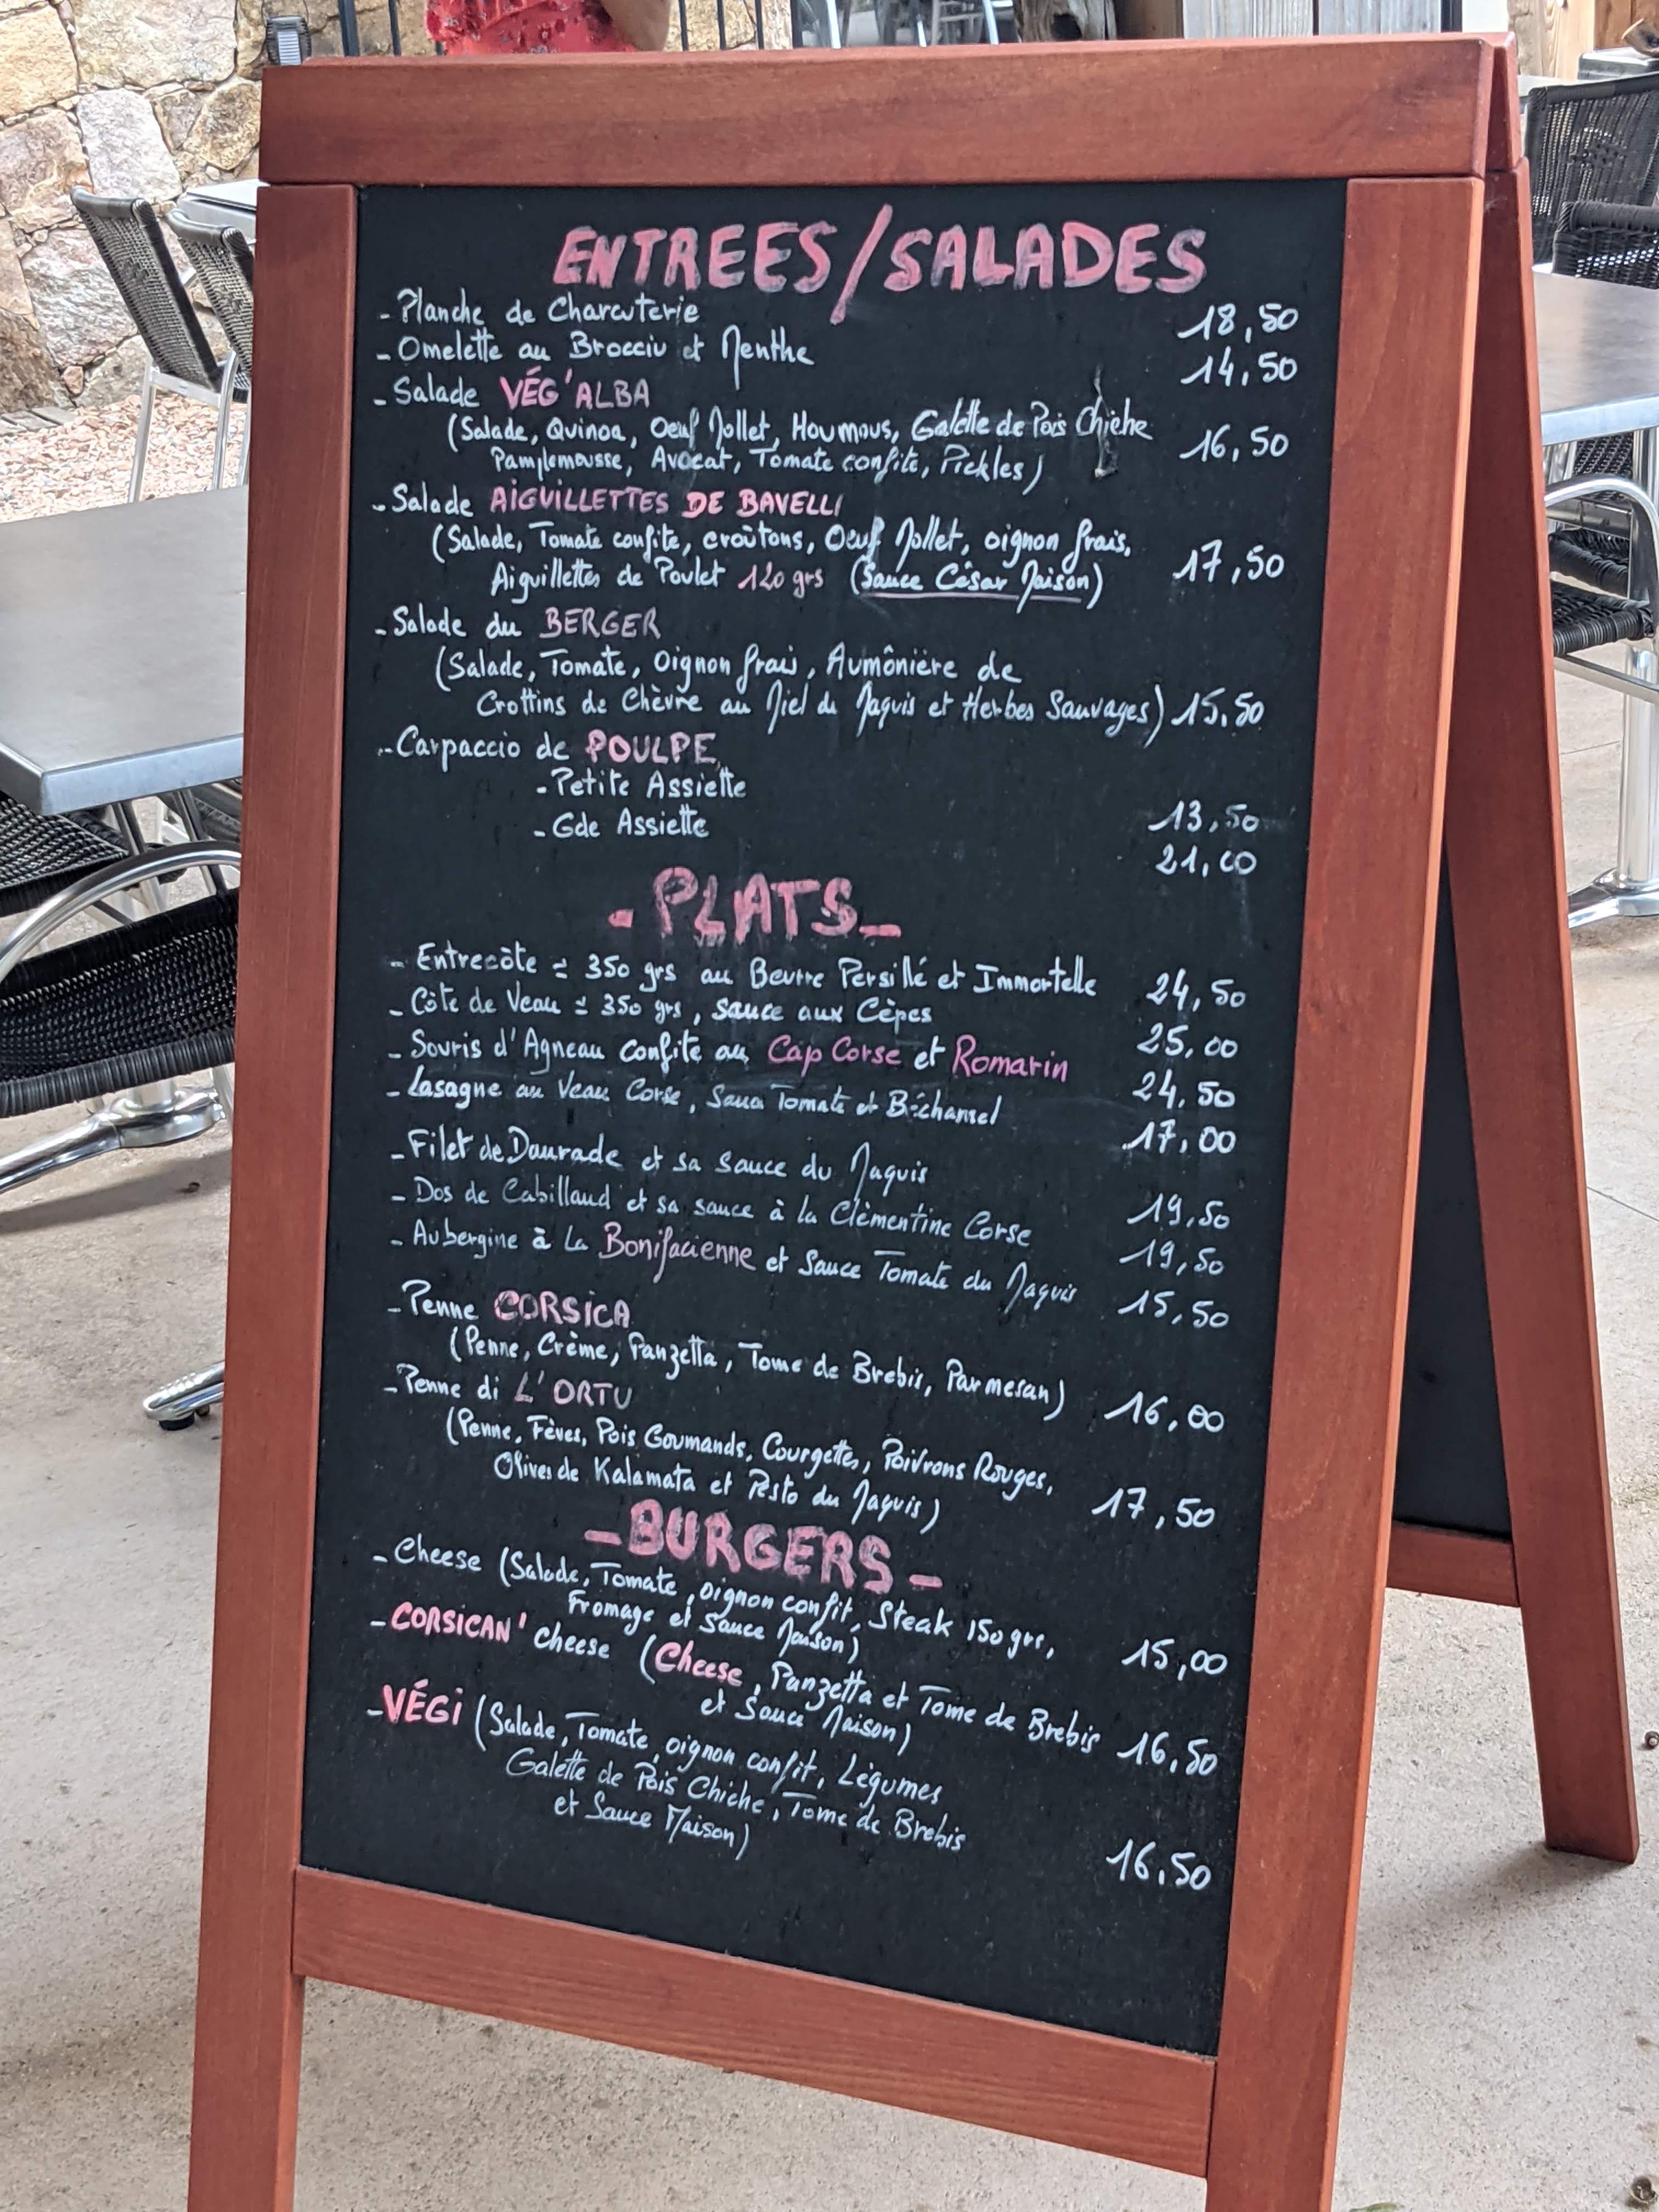 ENTREES/SALADES
- Planche de Charcuterie 18,50
- Omelette au Brocciu et Menthe 14,50
- Salade VÉG'ALBA
(Salade, Quinoa, Oeuf Mollet, Houmous, Galette de Pois Chiche 16,50
Pamplemousse, Avocat, Tomate confite, Pickles)
- Salade AIGUILLETTES DE BAVELLI
(Salade, Tomate confite, croûtons, Oeuf Mollet, oignon frais, 17,50
Aiguillettes de Poulet 120 grs (Sauce César Maison)
- Salade du BERGER
(Salade, Tomate, Oignon frais, Aumônière de
Crottins de Chèvre au Miel du Maquis et Herbes Sauvages) 15,50
- Carpaccio de POULPE
- Petite Assiette 13,50
- Gde Assiette 21,00
- PLATS -
- Entrecôte ± 350 grs au Beurre Persillé et Immortelle 24,50
- Côte de Veau ± 350 grs, sauce aux Cèpes 25,00
- Souris d'Agneau confite au Cap Corse et Romarin 24,50
- Lasagne au Veau Corse, Sauce Tomate et Béchamel 17,00
- Filet de Daurade et sa sauce du Maquis 19,50
- Dos de Cabillaud et sa sauce à la Clémentine Corse 19,50
- Aubergine à La Bonifacienne et Sauce Tomate du Maquis 15,50
- Penne CORSICA
(Penne, Crème, Panzetta, Tome de Brebis, Parmesan) 16,00
- Penne di L'ORTU
(Penne, Fèves, Pois Goumands, Courgettes, Poivrons Rouges, 17,50
Olives de Kalamata et Pesto du Maquis)
- BURGERS -
- Cheese (Salade, Tomate, oignon confit, Steak 150 grs, 15,00
Fromage et Sauce Maison)
- CORSICAN' cheese (Cheese, Panzetta et Tome de Brebis 16,50
et Sauce Maison)
- VÉGI (Salade, Tomate, oignon confit, Légumes
Galette de Pois Chiche, Tome de Brebis
et Sauce Maison) 16,50